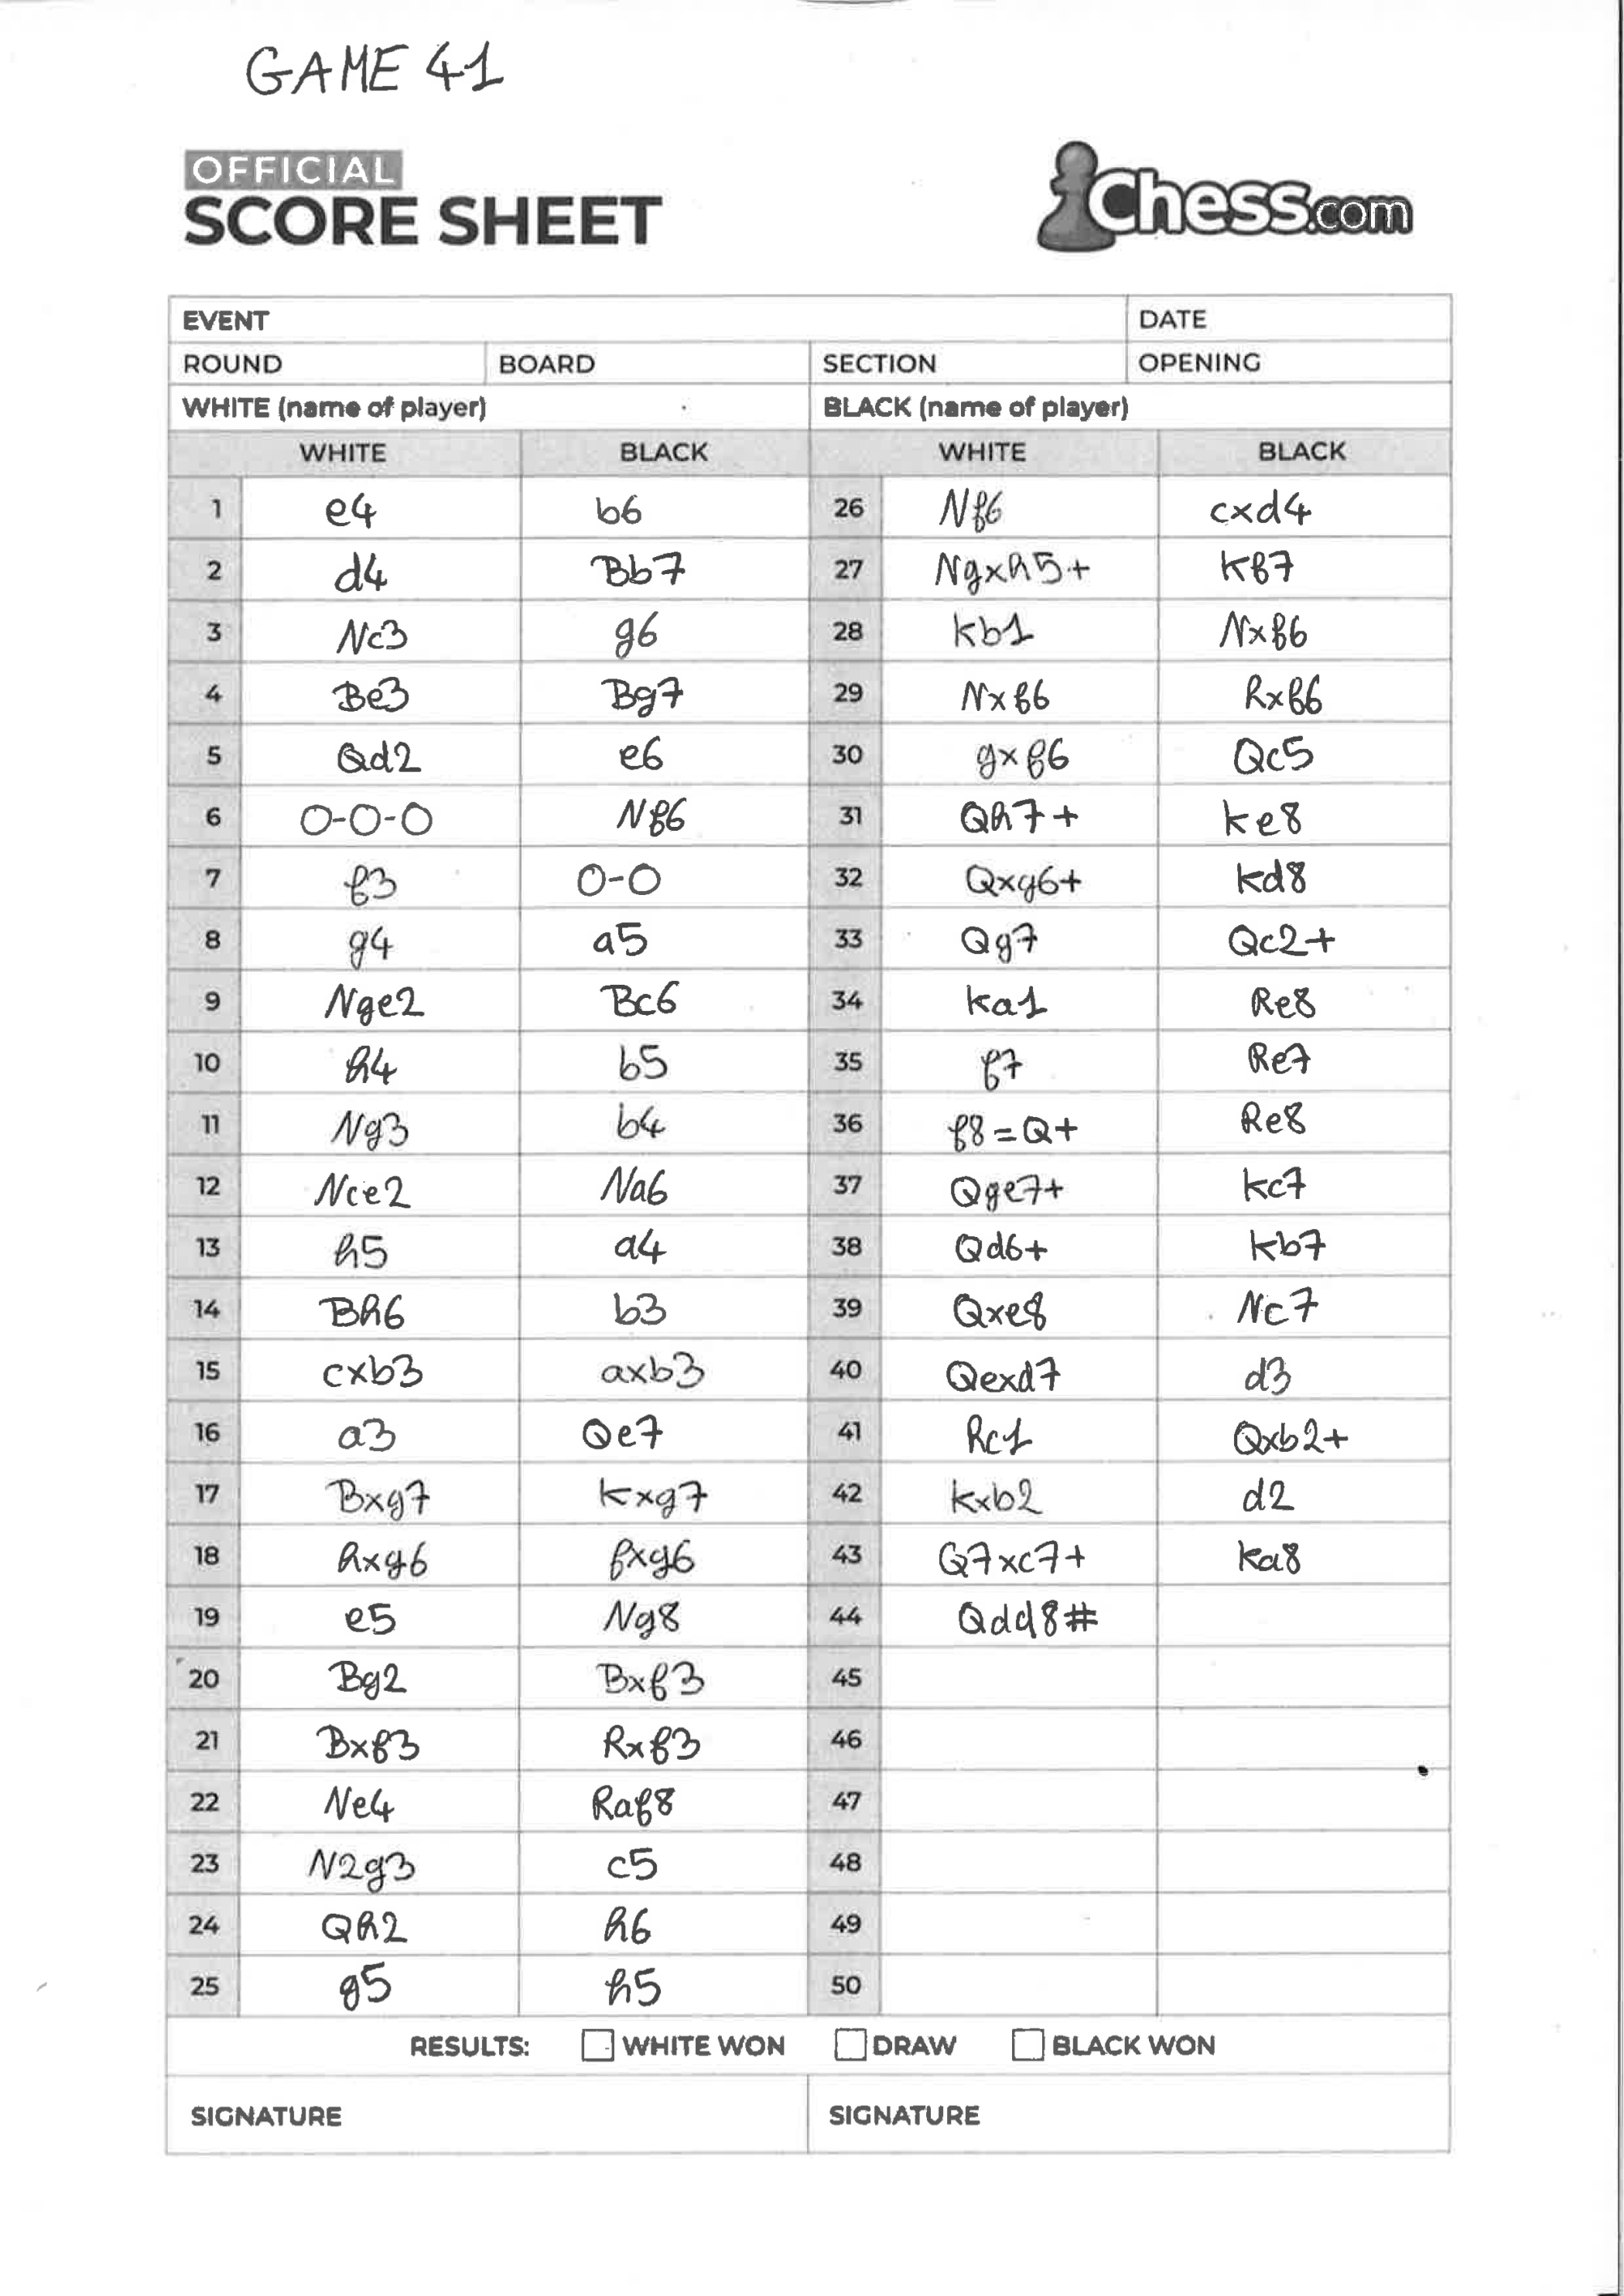 GAME 41
OFFICIAL
SCORE SHEET
Chess.com
EVENT DATE
ROUND BOARD SECTION OPENING
WHITE (name of player) BLACK (name of player)
WHITE BLACK WHITE BLACK
1 e4 b6 26 Nf6 cxd4
2 d4 Bb7 27 Ngxh5+ Kf7
3 Nc3 g6 28 Kb1 Nxf6
4 Be3 Bg7 29 Nxf6 Rxf6
5 Qd2 e6 30 gxf6 Qc5
6 0-0-0 Nf6 31 Qh7+ Ke8
7 f3 0-0 32 Qxg6+ Kd8
8 g4 a5 33 Qg7 Qc2+
9 Nge2 Bc6 34 Ka1 Re8
10 h4 b5 35 f7 Re7
11 Ng3 b4 36 f8=Q+ Re8
12 Nce2 Na6 37 Qge7+ Kc7
13 h5 a4 38 Qd6+ Kb7
14 Bh6 b3 39 Qxe8 Nc7
15 cxb3 axb3 40 Qexd7 d3
16 a3 Qe7 41 Rc1 Qxb2+
17 Bxg7 Kxg7 42 Kxb2 d2
18 hxg6 fxg6 43 Q7xc7+ Ka8
19 e5 Ng8 44 Qdd8#
20 Bg2 Bxf3 45
21 Bxf3 Rxf3 46
22 Ne4 Raf8 47
23 N2g3 c5 48
24 Qh2 h6 49
25 g5 h5 50
RESULTS: WHITE WON DRAW BLACK WON
SIGNATURE SIGNATURE